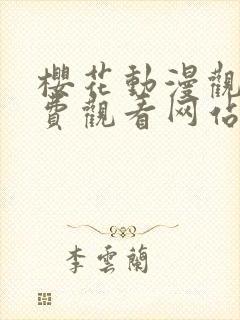 櫻花動漫觀
費觀看网站
李雲蘭